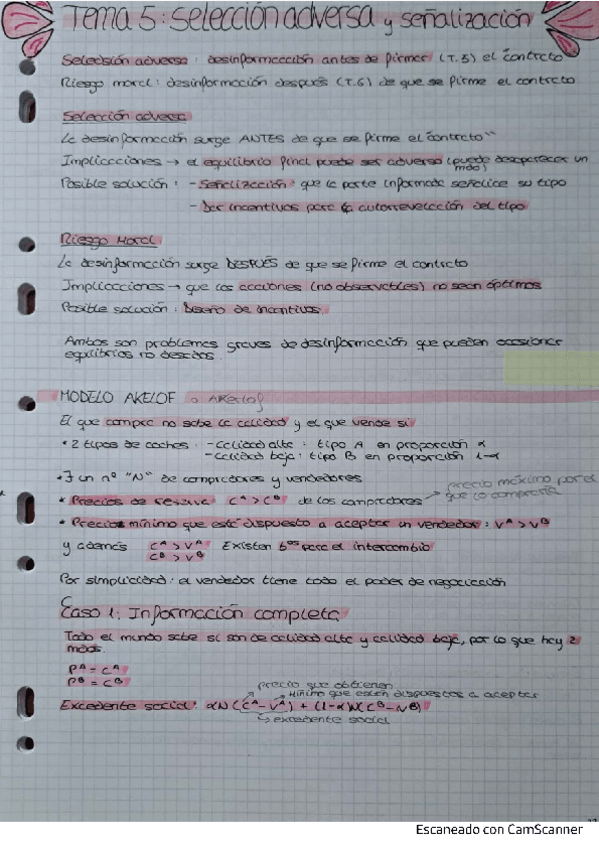 Tema 5: selección adversa y señalización
Selección adversa: desinformación antes de firmar (T.5) el contrato
Riesgo moral: desinformación después (T.6) de que se firme el contrato
Selección adversa
La desinformación surge ANTES de que se firme el "contrato"
Implicaciones → el equilibrio final puede ser adverso (puede desaparecer un
mdo)
Posible solución: - Señalización: que la parte informada señalice su tipo
- Dar incentivos para la autorrevelación del tipo
Riesgo Moral
La desinformación surge DESPUÉS de que se firme el contrato
Implicaciones → que las acciones (no observables) no sean óptimas
Posible solución: Diseño de incentivos.
Ambos son problemas graves de desinformación que pueden ocasionar
equilibrios no deseados.
MODELO AKELOF o Akerlof
El que compra no sabe la calidad y el que vende si
• 2 tipos de coches. - Calidad alta: tipo A en proporción α
- Calidad baja: tipo B en proporción 1-α
• ∃ un nº "N" de compradores y vendedores
precio máximo por el
• Precios de reserva C^A > C^B de los compradores → que lo compraría
• Precios mínimo que esté dispuesto a aceptar un vendedor: V^A > V^B
y además C^A > V^A Existen bºs para el intercambio
C^B > V^B
Por simplicidad: el vendedor tiene todo el poder de negociación
Caso 1: Información completa
Todo el mundo sabe si son de calidad alta y calidad baja, por lo que hay 2
mdos.
P^A = C^A
P^B = C^B
precio que obtienen
→ mínimo que estén dispuestos a aceptar
Excedente social: αN(C^A - V^A) + (1-α)N(C^B - V^B)
↳ excedente social
Escaneado con CamScanner